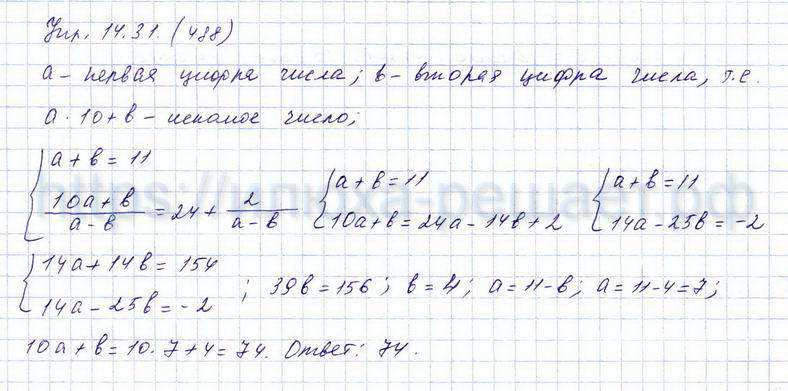 Упр. 14.31. (488)
a – первая цифра числа; b – вторая цифра числа, т.е.
a · 10 + b – искомое число;
{ a + b = 11 { a + b = 11 { a + b = 11
(10a + b)/(a – b) = 24 + 2/(a – b) 10a + b = 24a – 14b + 2 14a – 25b = –2
{ 14a + 14b = 154
14a – 25b = –2 ; 39b = 156; b = 4; a = 11 – b; a = 11 – 4 = 7;
10a + b = 10 · 7 + 4 = 74. Ответ: 74.
https://шпюха-решает.рф